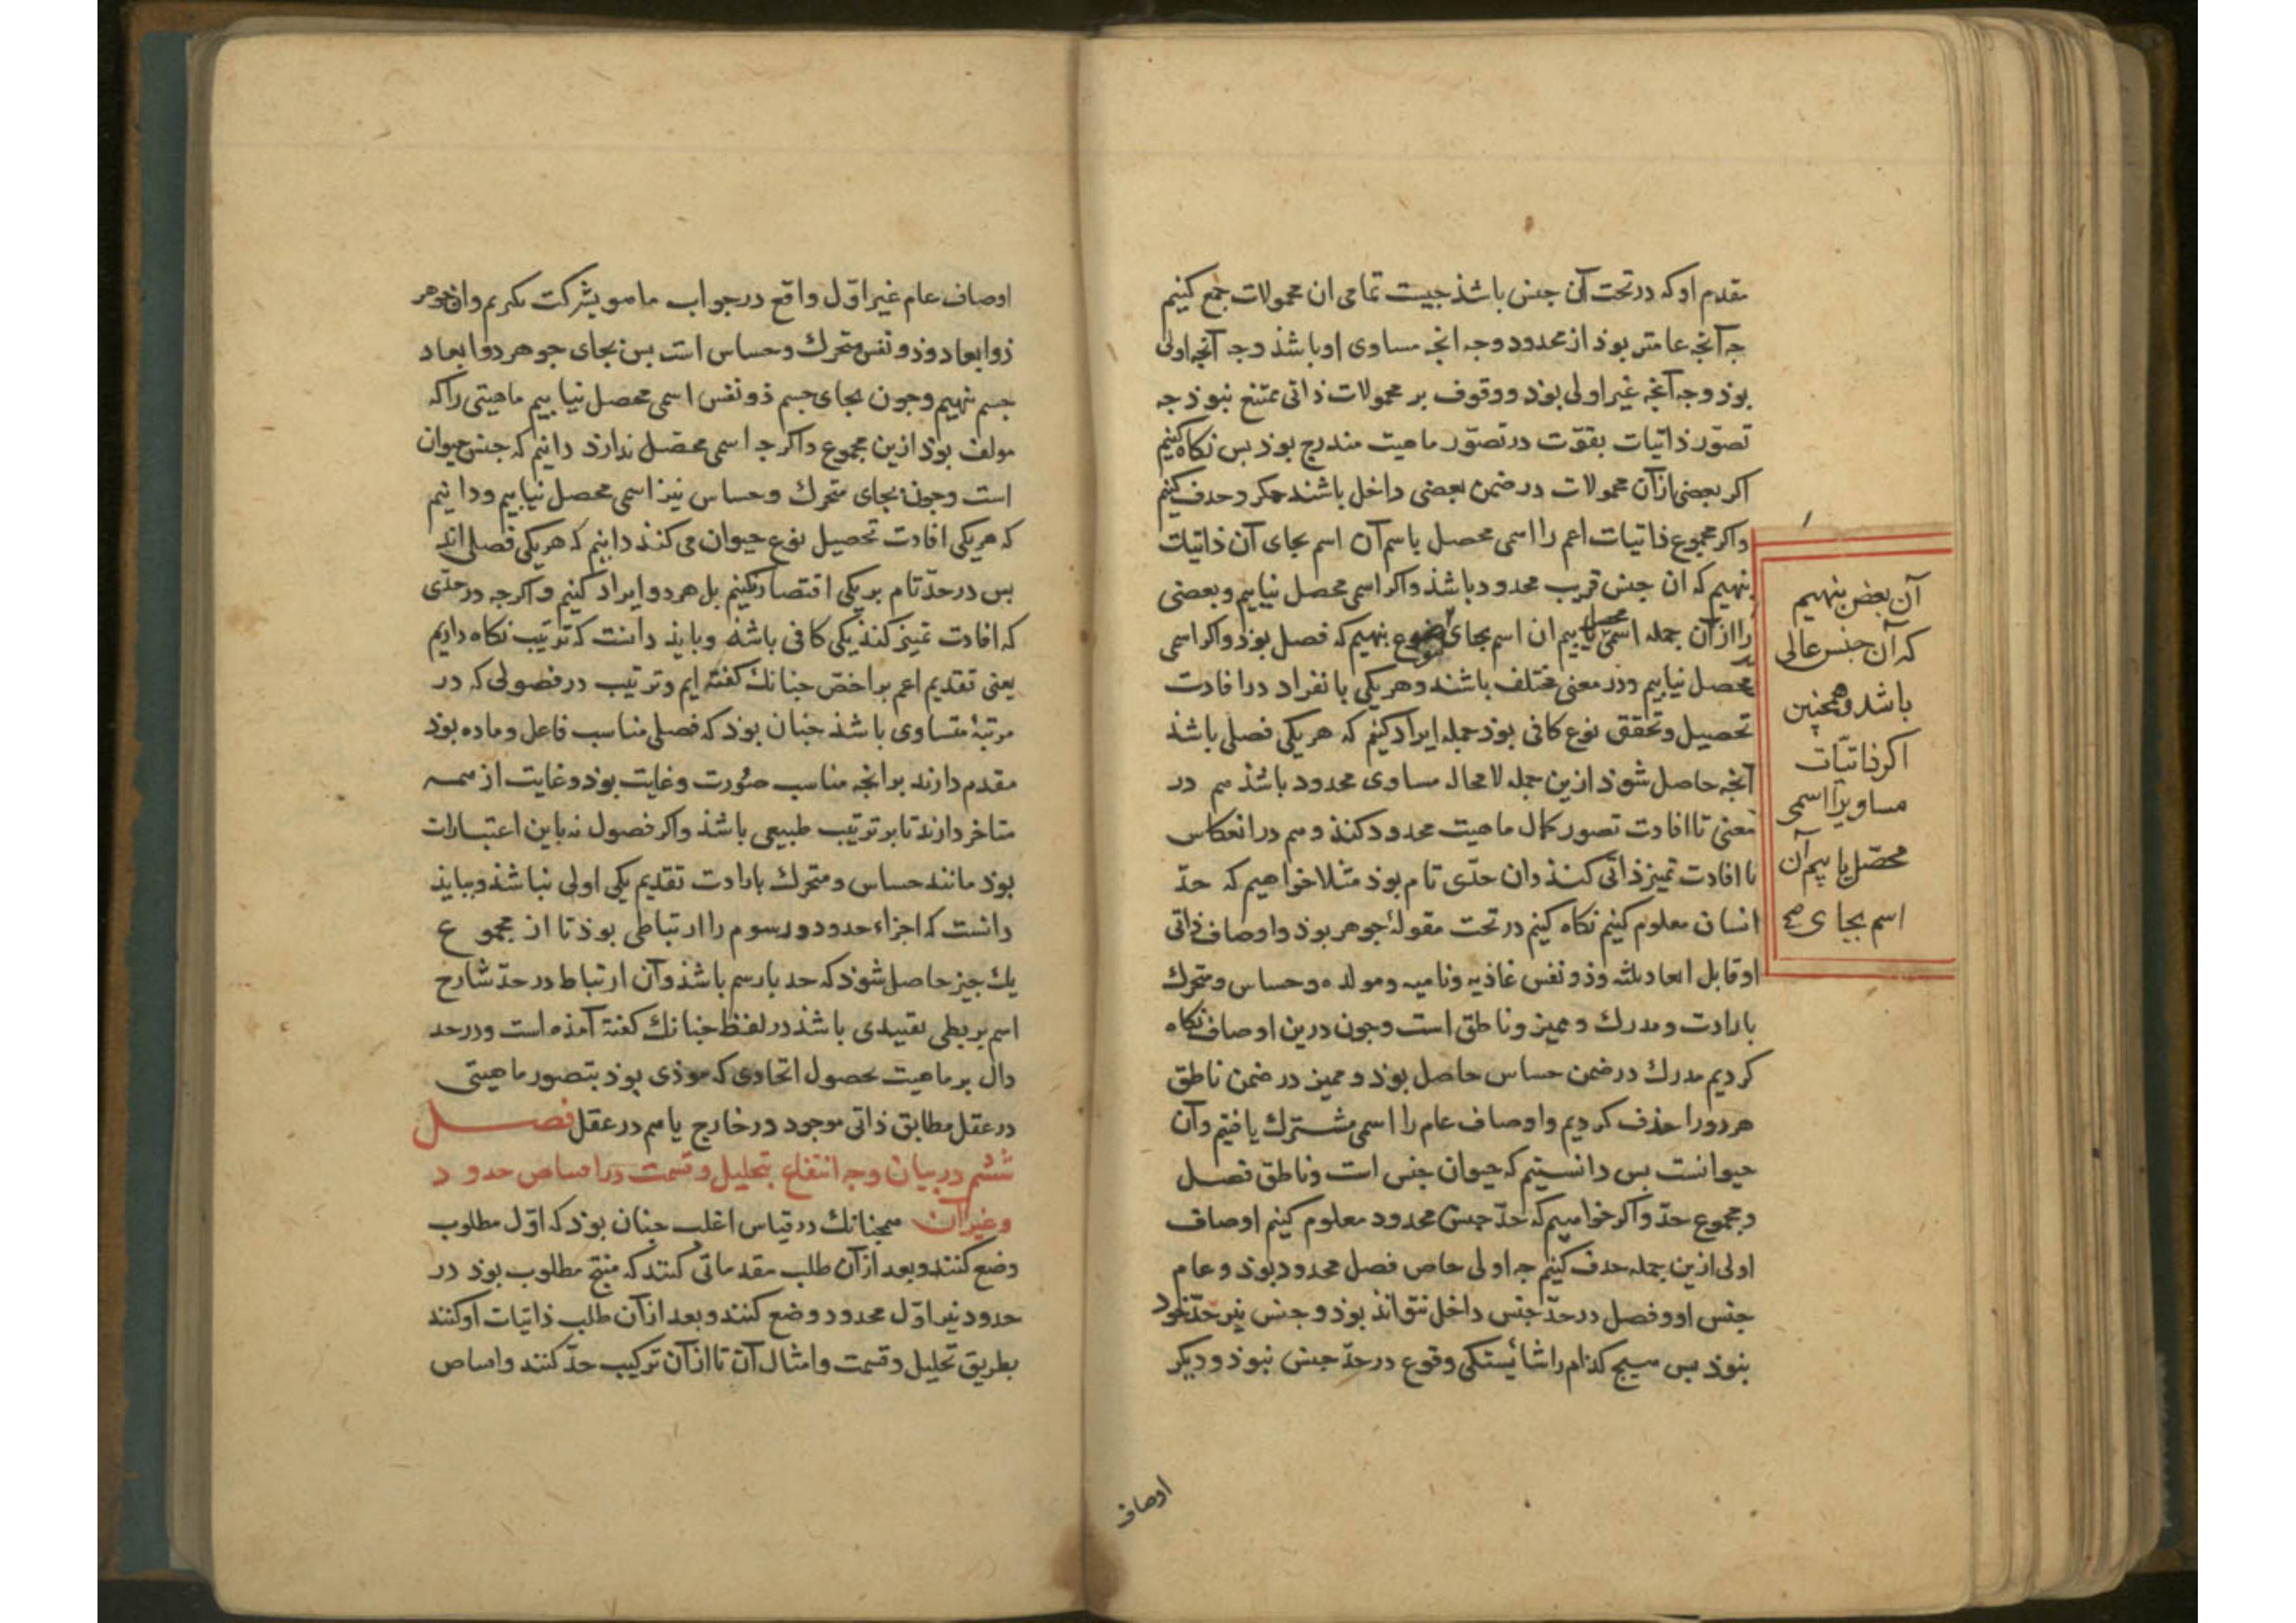 مقدم او که در تحت آن جنس باشذ جیست تمامی ان محمولات جمع کنیم
جه آنجه عامتر بوذ از محدود وجه انجه مساوی او باشذ وجه آنجه اولی
بوذ وجه آنجه غیر اولی بوذ ووقوف بر محمولات ذاتی ممتنع نبوذ جه
تصوّر ذاتیات بقوّت در تصوّر ماهیت مندرج بوذ بس نکاه کنیم
اکر بعضی از آن محمولات در ضمن بعضی داخل باشند مکرر حذف کنیم
واکر مجموع ذاتیات اعم را اسمی محصل یا بیم آن اسم بجای آن ذاتیات
بنهیم که ان جنس قریب محدود باشذ واکر اسمی محصل نیابیم وبعضی
را از آن جمله اسمی محصل یابیم ان اسم بجای مجموع بنهیم که فصل بوذ واکر اسمی
محصل نیابیم ودر معنی مختلف باشند وهر یکی بانفراد در افادت
تحصیل وتحقق نوع کافی بوذ جمله ایراد کنیم که هر یکی فصلی باشذ
آنجه حاصل شوذ ازین جمله لامحاله مساوی محدود باشذ هم در
معنی تا افادت تصور کمال ماهیت محدود کنذ وهم در انعکاس
تا افادت تمیز ذاتی کنذ وان حدّی تام بوذ مثلا خواهیم که حدّ
انسان معلوم کنیم نکاه کنیم در تحت مقولهٔ جوهر بوذ واوصاف ذاتی
او قابل ابعاد ثلثه وذو نفس غاذیه ونامیه ومولده وحساس ومتحرک
بارادت ومدرک وممیز وناطق است وجون درین اوصاف نکاه
کردیم مدرک در ضمن حساس حاصل بوذ وممیز در ضمن ناطق
هر دو را حذف کردیم واوصاف عام را اسمی مشترک یافتیم وآن
حیوانست بس دانستیم که حیوان جنس است وناطق فصل
ومجموع حدّ واکر خواهیم که حدّ جنس محدود معلوم کنیم اوصاف
اولی ازین جمله حذف کنیم جه اولی خاص فصل محدود بوذ وعام
جنس او وفصل در حدّ جنس داخل نتواند بوذ وجنس نیز حدّ خود
نبوذ بس هیج کدام را شائستکی وقوع در حدّ جنس نبوذ ودیکر
آن بعض بنهیم
که آن جنس عالی
باشد وهمچنین
اکر ذاتیّات
مساویرا اسمی
محصّل یابیم آن
اسم بجای صح
اوصاف
اوصاف عام غیر اوّل واقع در جواب ماهو بشرکت بکریم وان جوهر
ذو ابعاد وذو نفس متحرک وحساس است بس بجای جوهر ذو ابعاد
جسم نهیم وجون بجای جسم ذو نفس اسمی محصل نیابیم ماهیتی را که
مولف بوذ ازین مجموع واکر جه اسمی محصّل ندارذ دانیم که جنس حیوان
است وجون بجای متحرک وحساس نیز اسمی محصل نیابیم ودانیم
که هر یکی افادت تحصیل نوع حیوان می کنذ دانیم که هر یکی فصلی اند
بس در حدّ تام بر یکی اقتصار نکنیم بل هر دو ایراد کنیم واکرجه در حدّی
که افادت تمییز کنذ یکی کافی باشذ وبایذ دانست که ترتیب نکاه داریم
یعنی تقدیم اعم بر اخصّ جنانک کفته ایم وترتیب در فصولی که در
مرتبهٔ متساوی باشذ جنان بوذ که فصلی مناسب فاعل وماده بوذ
مقدم دارند بر انجه مناسب صورت وغایت بوذ وغایت از همه
متاخر دارند تا بر ترتیب طبیعی باشذ واکر فصول نه باین اعتبارات
بوذ مانند حساس ومتحرک بارادت تقدیم یکی اولی نباشذ وببایذ
دانست که اجزاء حدود ورسوم را ارتباطی بوذ تا از مجموع
یک جیز حاصل شوذ که حد یا رسم باشذ وآن ارتباط در حدّ شارح
اسم بربطی تقییدی باشذ در لفظ جنانک کفته آمذه است ودر حد
دال بر ماهیت بحصول اتحادی که موذی بوذ بتصور ماهیتی
در عقل مطابق ذاتی موجود در خارج یا هم در عقل فصل
ششم در بیان وجه انتفاع بتحلیل وقسمت در اقتناص حدود
وغیر آن همجنانک در قیاس اغلب جنان بوذ که اوّل مطلوب
وضع کنند وبعد از آن طلب مقدماتی کنند که منتج مطلوب بوذ در
حدود نیز اوّل محدود وضع کنند وبعد از آن طلب ذاتیات او کنند
بطریق تحلیل وقسمت وامثال آن تا از آن ترکیب حدّ کنند واقتناص